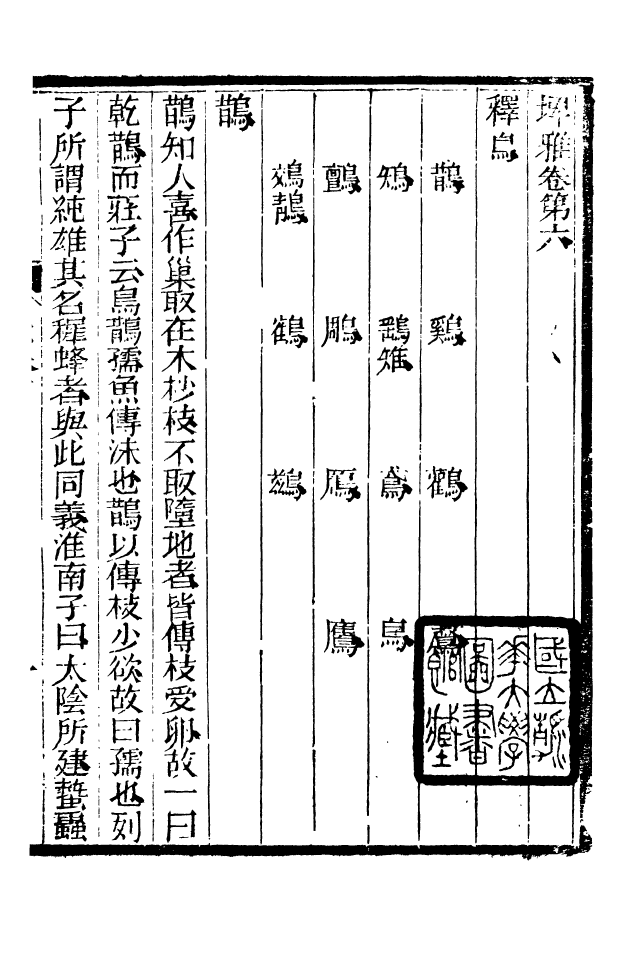 埤雅卷第六
釋鳥
鵲 鷄 鸛
鳶 烏
鸇 鵰 鴈 鷹
鵁鶄 鶴
鵲
鵲知人喜作巢取在木杪枝不取墮地者皆傳枝受卵故一曰
乾鵲而莊子云烏鵲孺魚傳沫也鵲以傳枝少欲故曰孺也列
子所謂純雄其名穉蜂者與此同義淮南子曰太陰所建蟄蟲
國立清
華大學
圖書
館藏